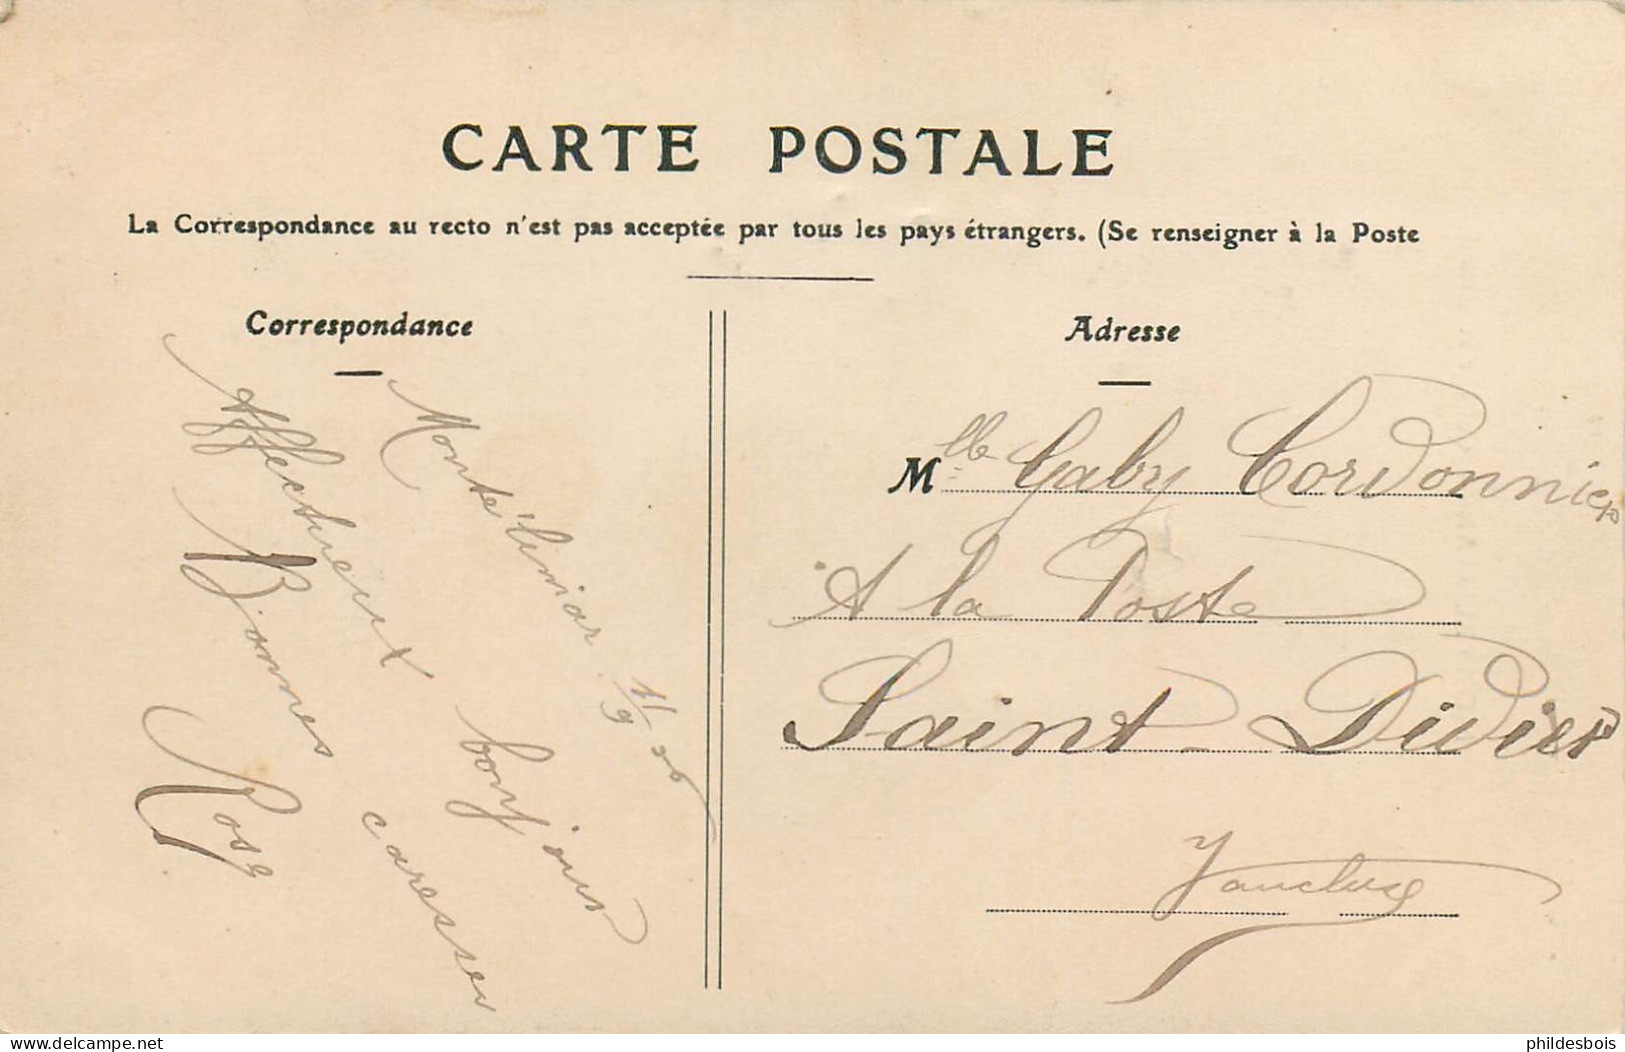 CARTE POSTALE
La Correspondance au recto n'est pas acceptée par tous les pays étrangers. (Se renseigner à la Poste
Correspondance
Montélimar 1/9 06
Affectueux bonjours
Bonnes caresses
Rose
Adresse
Mlle Gaby Cordonnier
A la Poste
Saint-Didier
Vaucluse
www.delcampe.net
phildesbois